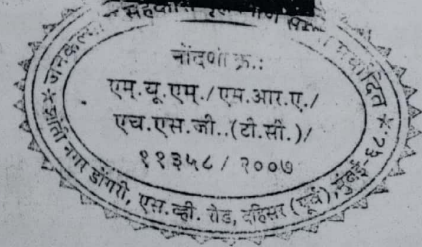 जनकल्याण सहकारी गृहनिर्माण संस्था मर्यादित
नोंदणी क्र.:
एम.यू.एम./एस.आर.ए./
एच.एस.जी..(टी.सी.)/
११३५८/२००७
शांती नगर डोंगरी, एस.व्ही. रोड, दहिसर (पूर्व), मुंबई-६८.